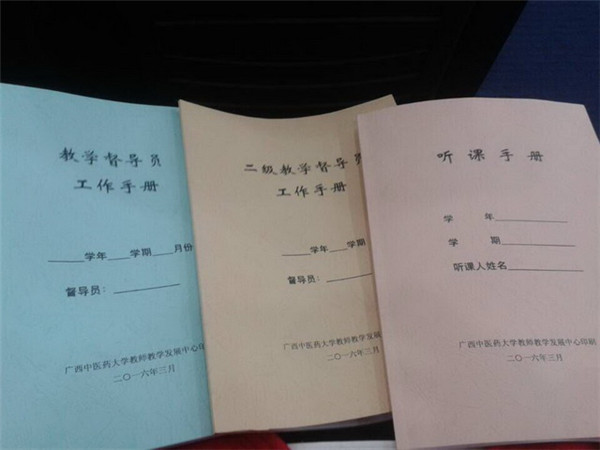 教学督导员
工作手册
_____学年____学期____月份
督导员：____________
广西中医药大学教师教学发展中心印
二〇一六年三月
二级教学督导员
工作手册
_____学年____学期
督导员：
广西中医药大学教师教学发展
二〇一六年三月
听课手册
学 年____________
学 期____________
听课人姓名____________
广西中医药大学教师教学发展中心印制
二〇一六年三月